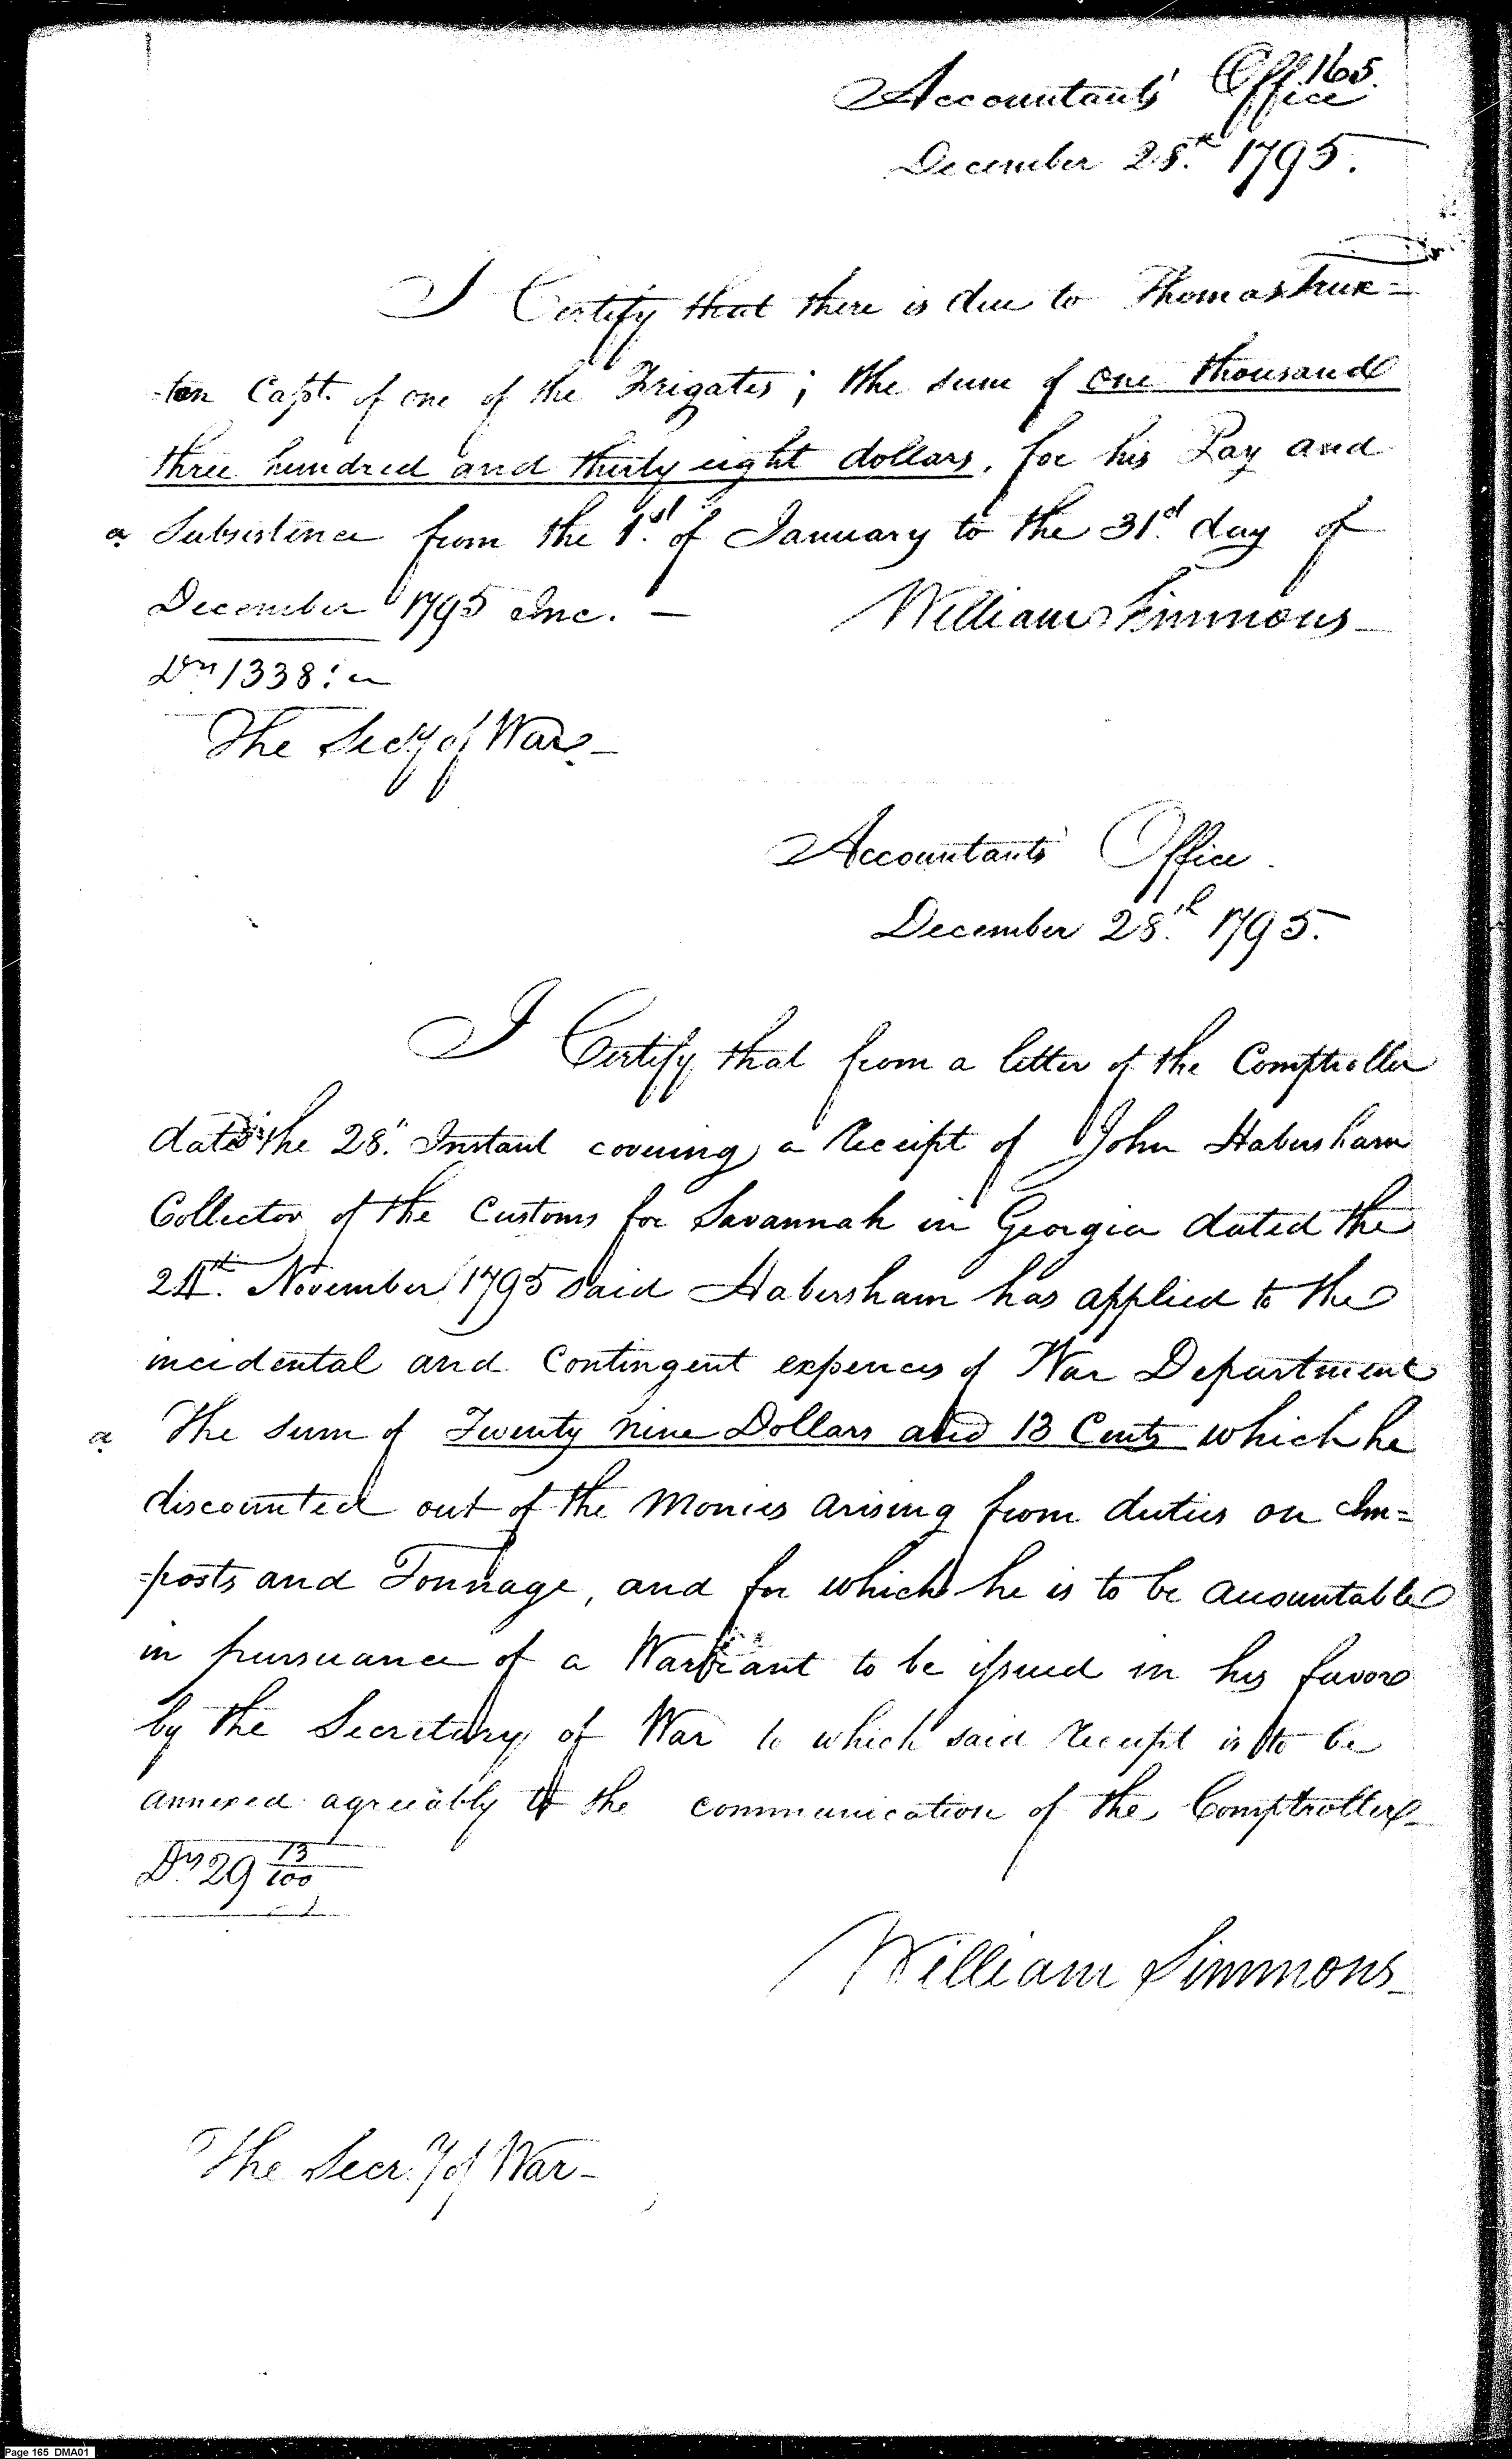 165.
Accountants' Office
December 28.th 1795.
I Certify that there is due to Thomas Trux=
-ton Capt. of one of the Frigates; the sum of one thousand
three hundred and thirty eight dollars, for his Pay and
a Subsistence from the 1.st of January to the 31.st day of
December 1795 Inc. —
William Simmons
Drs 1338:
The Secy of War
Accountants' Office.
December 28.th 1795.
I Certify that from a letter of the Comptroller
dated the 28. Instant covering a Receipt of John Habersham
Collector of the Customs for Savannah in Georgia dated the
24.th November 1795 said Habersham has applied to the
incidental and Contingent expences of War Department
a The sum of Twenty nine Dollars and 13 Cents which he
discounted out of the Monies arising from duties on Im=
=posts and Tonnage, and for which he is to be accountable
in pursuance of a Warrant to be issued in his favor
by the Secretary of War to which said Receipt is to be
annexed agreeably to the communication of the Comptroller
Drs 29 13/100
William Simmons
The Secr.y of War-
Page 165 DMA01